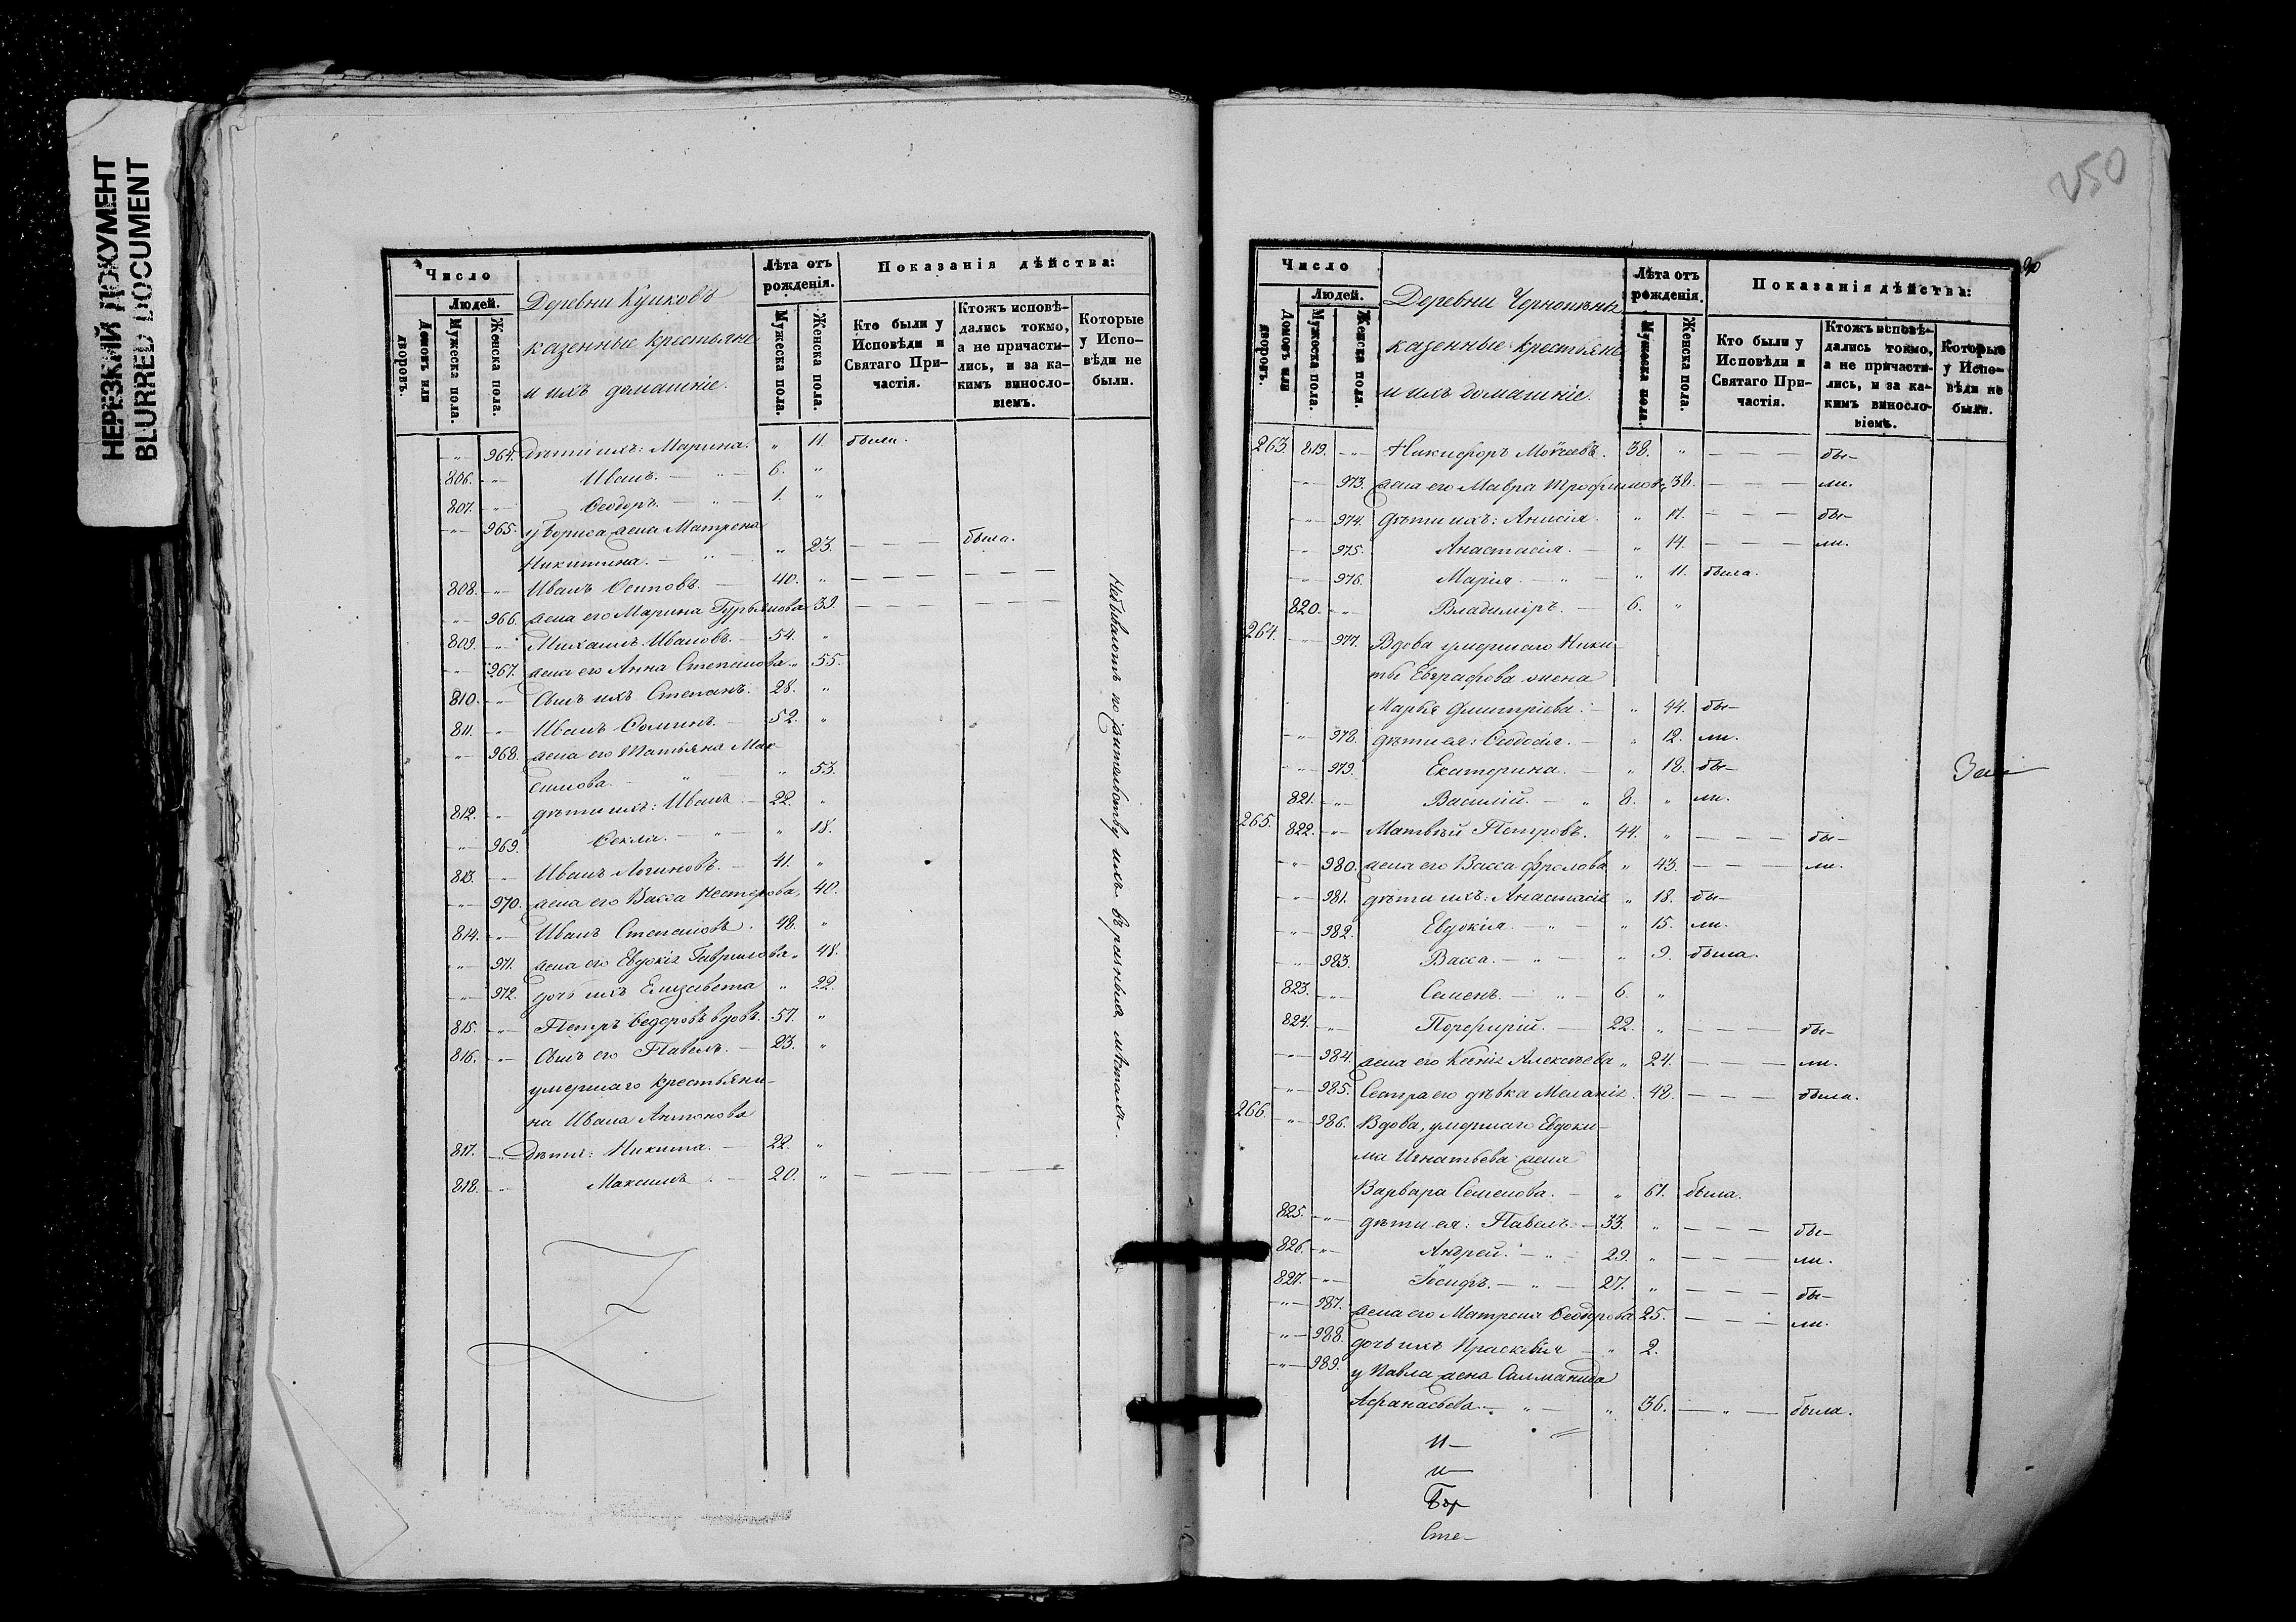 НЕРЕЗКИЙ ДОКУМЕНТ
BLURRED DOCUMENT
Число
Людей.
Домовъ или дворовъ.
Мужеска пола.
Женска пола.
Деревни Куиковъ
казенные крестьяне
и ихъ домашніе.
Лѣта отъ рожденія.
Мужеска пола.
Женска пола.
Показанія дѣйства:
Кто были у Исповѣди и Святаго При-частія.
Ктожъ исповѣ-дались токмо, а не причасти-лись, и за ка-кимъ винос­ло-віемъ.
Которые у Испо-вѣди не были.
-"- 964. дѣти ихъ: Марина. " 11. были.
806. -"- Иванъ. - " - 6. "
807. -"- Ѳеодоръ. - " - 1. "
-"- 965. у Бориса жена Матрена
Никитина. - " - " 23. - - - была.
808. -"- Иванъ Осиповъ. - 40. " - - - - - -
-"- 966. жена его Марина Гурьянова 39. - - - - - -
809. -"- Михаилъ Ивановъ. - 54. "
-"- 967. жена его Анна Степанова " 55.
810. -"- Сынъ ихъ Степанъ. 28. "
811. -"- Иванъ Ѳоминъ. - 52. "
-"- 968. жена его Татьяна Мак-
симова. - " - " 53.
812. -"- дѣти ихъ: Иванъ. - 22. "
-"- 969. Ѳекла. - " - " 18.
813. -"- Иванъ Логиновъ. - 41. "
-"- 970. жена его Васса Нестерова " 40.
814. -"- Иванъ Степановъ. 48. "
-"- 971. жена его Евдокія Гаврилова " 48.
-"- 972. дочь ихъ Елизавета " 22.
815. -"- Петръ Ѳедоровъ вдовъ. 57. "
816. -"- Сынъ его Павелъ. - 23. "
умершаго крестьяни-
на Ивана Антонова
817. -"- дѣти: Никита. - 22. "
818. -"- Максимъ. - 20. " - - - - - -
Небываютъ по жительству ихъ въ разныхъ мѣстахъ.
250
90
Число
Людей.
Домовъ или дворовъ.
Мужеска пола.
Женска пола.
Деревни
казенные крестьяне
и ихъ домашніе.
Лѣта отъ рожденія.
Мужеска пола.
Женска пола.
Показанія дѣйства:
Кто были у Исповѣди и Святаго При-частія.
Ктожъ исповѣ-дались токмо, а не причасти-лись, и за ка-кимъ винос­ло-віемъ.
Которые у Испо-вѣди не были.
263. 819. -"- Никифоръ Моѵсеевъ. 38. " - - - бы-
-"- 973. жена его Мавра Трофимова 38. - - - ли.
-"- 974. дѣти ихъ: Анисія. " 17. - - - бы-
-"- 975. Анастасія. - " 14. - - - ли.
-"- 976. Марія. - " - " 11. была.
820. -"- Владиміръ. - 6. "
264. -"- 977. Вдова умершаго Ники-
ты Евграфова жена
Марья Дмитріева. - " 44. бы-
-"- 978. дѣти ея: Ѳеодосія. - " 12. ли.
-"- 979. Екатерина. - " 18. бы-
821. -"- Василій. - " 8. " ли.
265. 822. -"- Матвѣй Петровъ. 44. " - - - бы-
-"- 980. жена его Васса Фролова " 43. - - ли.
-"- 981. дѣти ихъ: Анастасія " 18. бы-
-"- 982. Евдокія. - " - " 15. ли.
-"- 983. Васса. - " - " 9. была.
823. -"- Семенъ. - " - 6. "
824. -"- Порфирій. - 22. " - - - бы-
-"- 984. жена его Ксенія Алексѣева " 24. - - - ли.
-"- 985. Сестра его дѣвка Меланія. 48. - - - была.
266. -"- 986. Вдова, умершаго Евдоки-
ма Игнатьева жена
Варвара Семенова. - " 61. была.
825. -"- дѣти ея: Павелъ. - 33. " - - - бы-
826. -"- Андрей. - " - 29. " - - - ли.
827. -"- Іосифъ. - " - 27. " - - - бы-
-"- 987. жена его Матрена Ѳеодорова 25. - - - ли.
-"- 988. дочь ихъ Праскевія - " 2.
-"- 989. у Павла жена Саломанида
Афанасьева. - " - " 36. - " - была.
И-
и-
Сте-